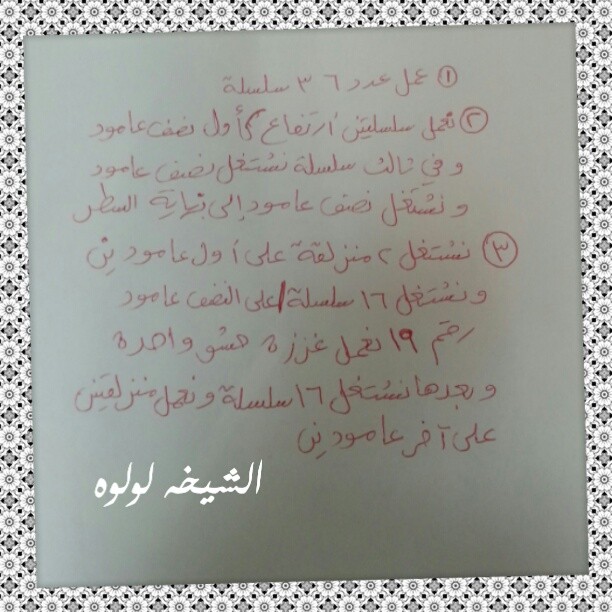 ① عمل عدد ٣٦ سلسلة
② نعمل سلسلتين ارتفاع كأول نصف عامود
وفي ثالث سلسلة نشتغل نصف عامود
ونشتغل نصف عامود إلى نهاية السطر
③ نشتغل ٢ منزلقة على أول عامودين
ونشتغل ١٦ سلسلة / على النصف عامود
رقم ١٩ نعمل غرزة حشو واحدة
وبعدها نشتغل ١٦ سلسلة ونعمل منزلقتين
على آخر عامودين
الشيخه لولوه